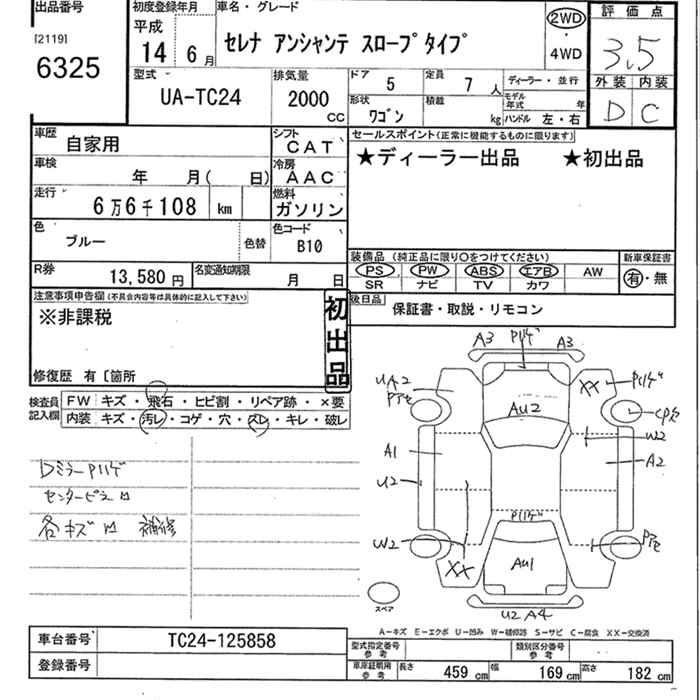 出品番号
[2119]
6325
初度登録年月
平成
14 6月
車名・グレード
セレナ アンシャンテ スロープタイプ
2WD
・
4WD
評価点
3.5
外装 内装
D C
型式
UA-TC24
排気量
2000
CC
ドア
5
定員
7人
形状
ワゴン
積載
kg
ディーラー・並行
モデル年式 年
ハンドル 左・右
車歴
自家用
シフト
CAT
車検
年 月( 日)
冷房
AAC
走行
6万6千108 km
燃料
ガソリン
色
ブルー
色替
色コード
B10
R券
13,580円
名変通知期限
月 日
セールスポイント(正常に機能するものに限ります)
★ディーラー出品 ★初出品
装備品 (純正品に限り○をつけてください)
PS PW ABS エアB AW
SR ナビ TV カワ
新車保証書
有・無
後日品
保証書・取説・リモコン
注意事項申告欄(不具合内容等は具体的に記入して下さい)
※非課税
初出品
修復歴 有〔箇所
検査員記入欄
FW キズ・飛石・ヒビ割・リペア跡・×要
内装 キズ・汚レ・コゲ・穴・スレ・キレ・破レ
Dミラー P11ゲ
センターピラー凹
各キズ凹 補修
A3 P11ゲ A3
UA2
XX P11ゲ
AU2
W2
A1
A2
U2
P11ゲ
W2
XX
AU1
スペア
U2 A4
A-キズ E-エクボ U-凹み W-補修跡 S-サビ C-腐食 XX-交換済
車台番号
TC24-125858
登録番号
型式指定番号
参考
類別区分番号
参考
車庫証明用
参考
長さ 459cm 幅 169cm 高さ 182cm